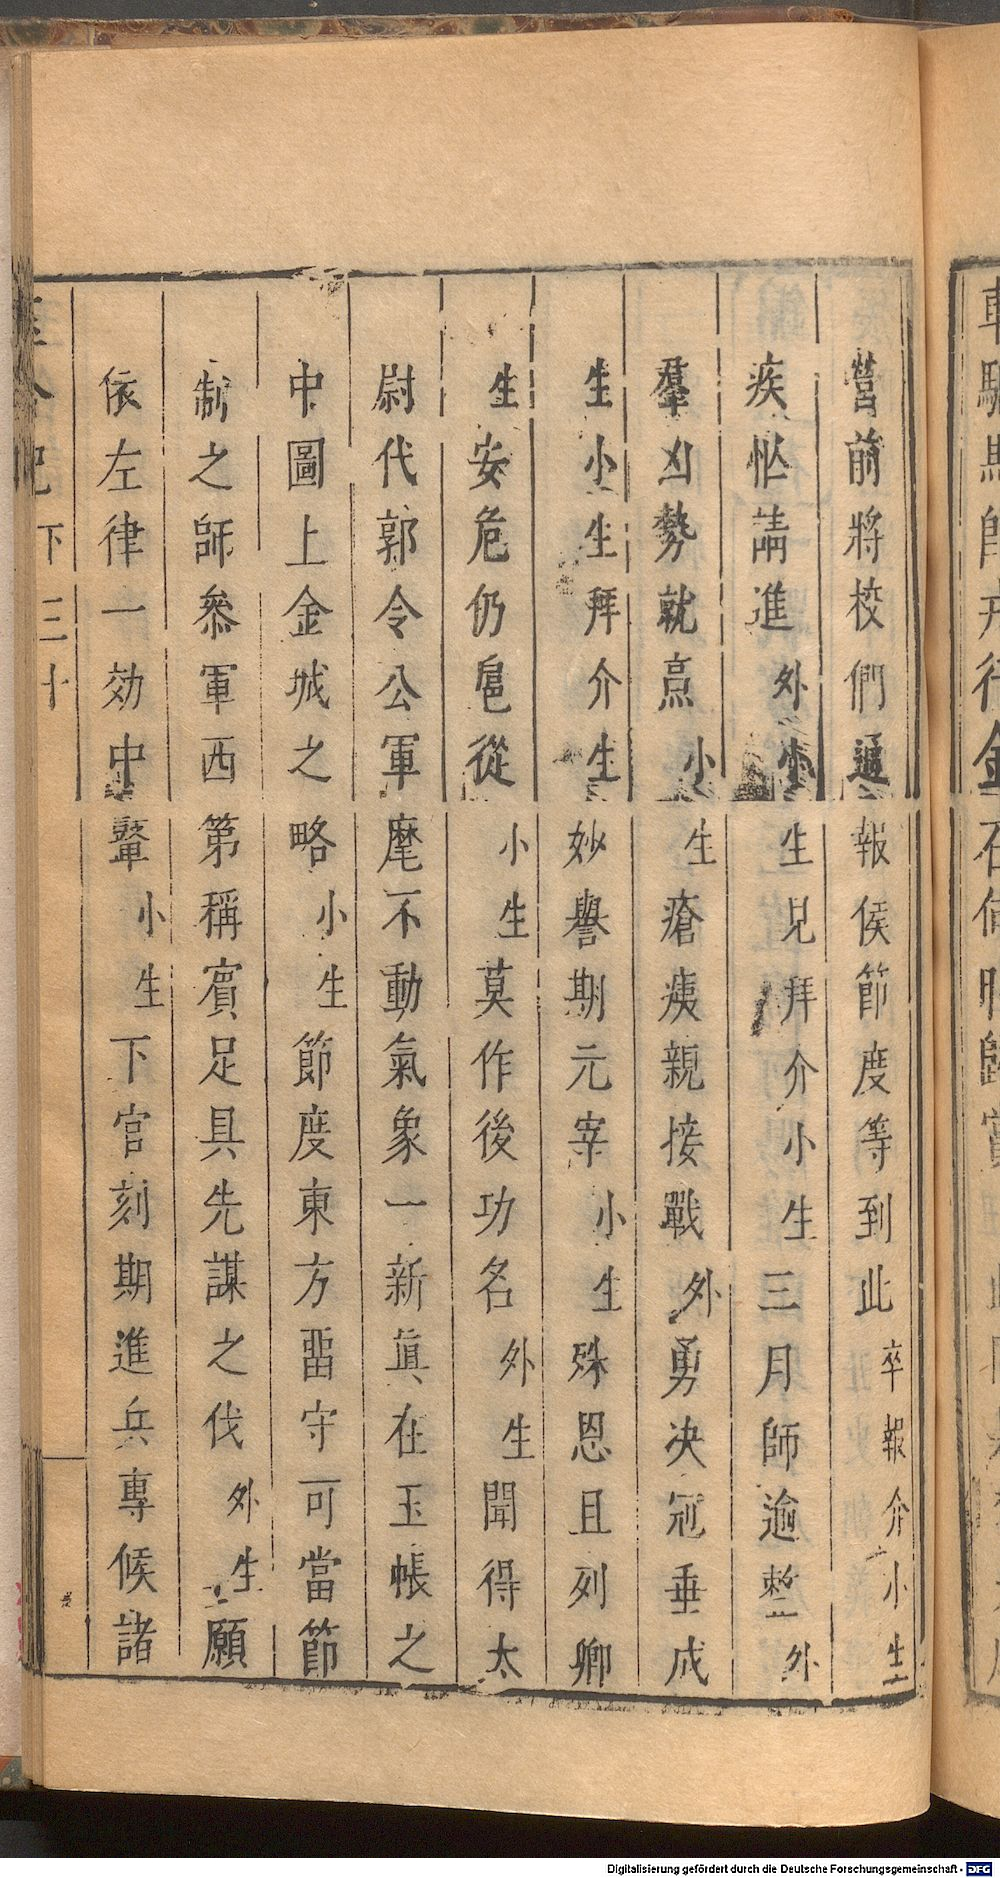 營前將校們通報侯節度等到此卒報介小生
疾忙請進外小生見拜介小生三月師逾整外
羣凶勢就烹小生瘡痍親接戰外勇决冠垂成
生小生拜介生妙譽期元宰小生殊恩且列卿
生安危仍扈從小生莫作後功名外生聞得太
尉代郭令公軍麾不動氣象一新眞在玉帳之
中圖上金城之略小生節度東方畱守可當節
制之師叅軍西第稱賓足具先謀之伐外生願
依左律一効中鞶小生下官刻期進兵專候諸
記下三十
Digitalisierung gefördert durch die Deutsche Forschungsgemeinschaft - DFG